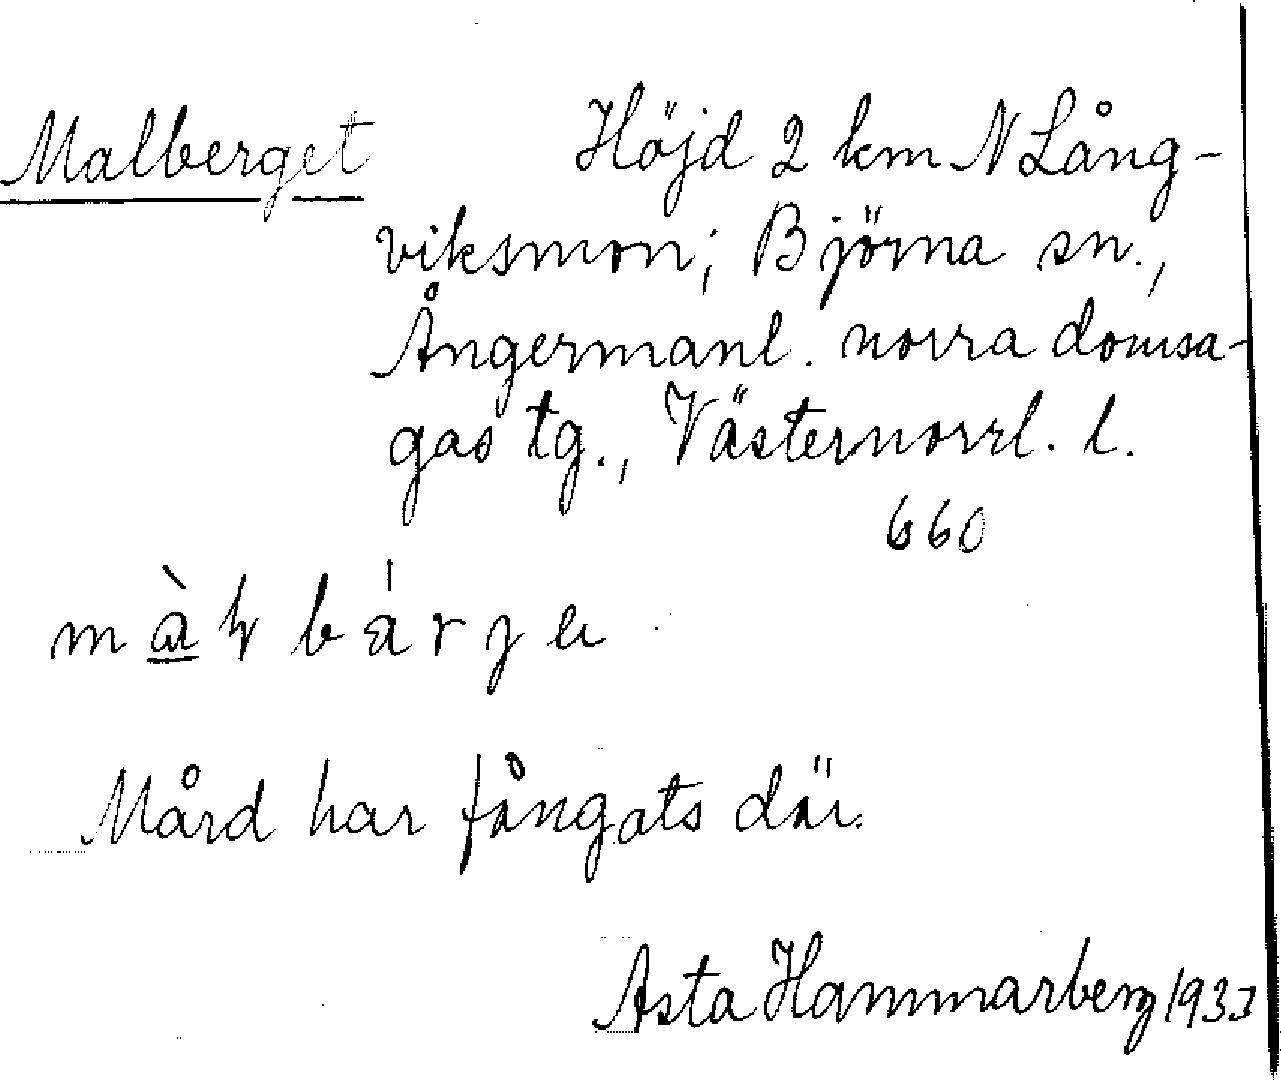 Malberget Höjd 2 km N Lång-
viksmon; Björna sn.,
Ångermanl. norra domsa-
gas tg., Västernorrl. l.
660
Mård har fångats där.
Asta Hammarberg